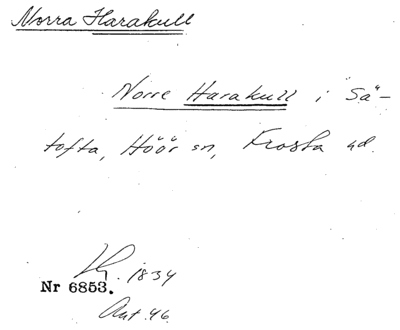 Norra Harakull
Norre Harakull i "Sä"-
tofta, Höör sn, Frosta hd.
1834
Nr 6853.
Ant. 46